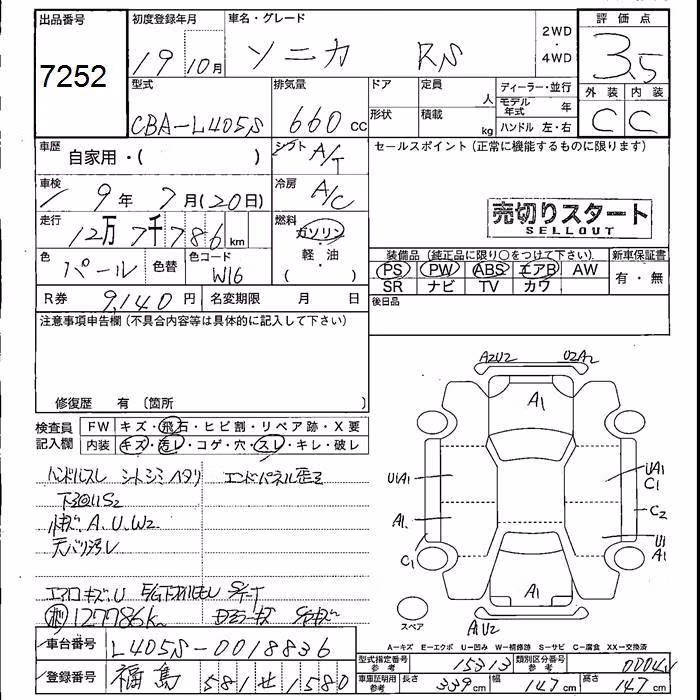 出品番号
7252
初度登録年月
19年10月
車名・グレード
ソニカ RS
2WD
・
4WD
評価点
3.5
型式
CBA-L405S
排気量
660cc
ドア
形状
定員
人
積載
kg
ディーラー・並行
モデル年式 年
ハンドル 左・右
外装 内装
C C
車歴
自家用・( )
シフト A/T
セールスポイント(正常に機能するものに限ります)
車検
19年7月(20日)
冷房 A/C
売切りスタート
SELLOUT
走行
12万7千786km
燃料
ガソリン
・
軽・油
( )
色
パール
色替
色コード
W16
装備品(純正品に限り○をつけて下さい)
新車保証書
PS PW ABS エアB AW
有・無
SR ナビ TV カワ
R券 9,140円 名変期限 月 日
後日品
注意事項申告欄(不具合内容等は具体的に記入して下さい)
修復歴 有(箇所 )
検査員記入欄
FW キズ・飛石・ヒビ割・リペア跡・X要
内装 キズ・汚レ・コゲ・穴・スレ・キレ・破レ
ハンドルスレ シートシミ ヘタリ エンドパネル歪ミ
A.U.W2
天バリ汚レ
エアロキズ.U
127786km
A2U2 U2A2
A1
U1A1
UA1
C1
A1
C2
C1
U1
A1
A1
A1U2
スペア
A－キズ E－エクボ U－凹み W－補修跡 S－サビ C－腐食 XX－交換済
車台番号
L405S-0018836
型式指定番号 参考 15313
類別区分番号 参考 0004
登録番号
福島 581 せ 1580
車庫証明用 参考
長さ 339cm
幅 147cm
高さ 147cm